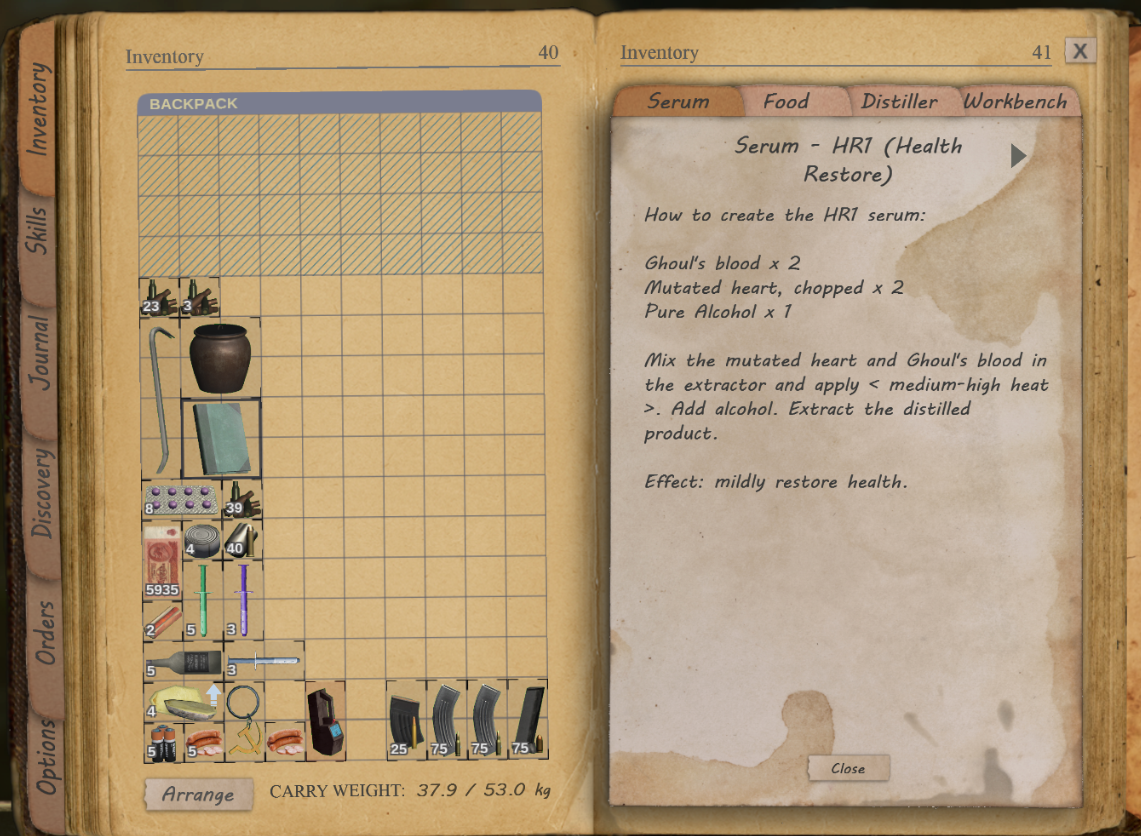 Inventory
40
Inventory
41
X
Inventory
Skills
Journal
Discovery
Orders
Options
BACKPACK
23
3
8
39
4
40
5935
2
5
3
5
3
4
5
5
25
75
75
75
Arrange
CARRY WEIGHT: 37.9 / 53.0 kg
Serum
Food
Distiller
Workbench
Serum - HR1 (Health
Restore)
How to create the HR1 serum:
Ghoul's blood x 2
Mutated heart, chopped x 2
Pure Alcohol x 1
Mix the mutated heart and Ghoul's blood in
the extractor and apply < medium-high heat
>. Add alcohol. Extract the distilled
product.
Effect: mildly restore health.
Close